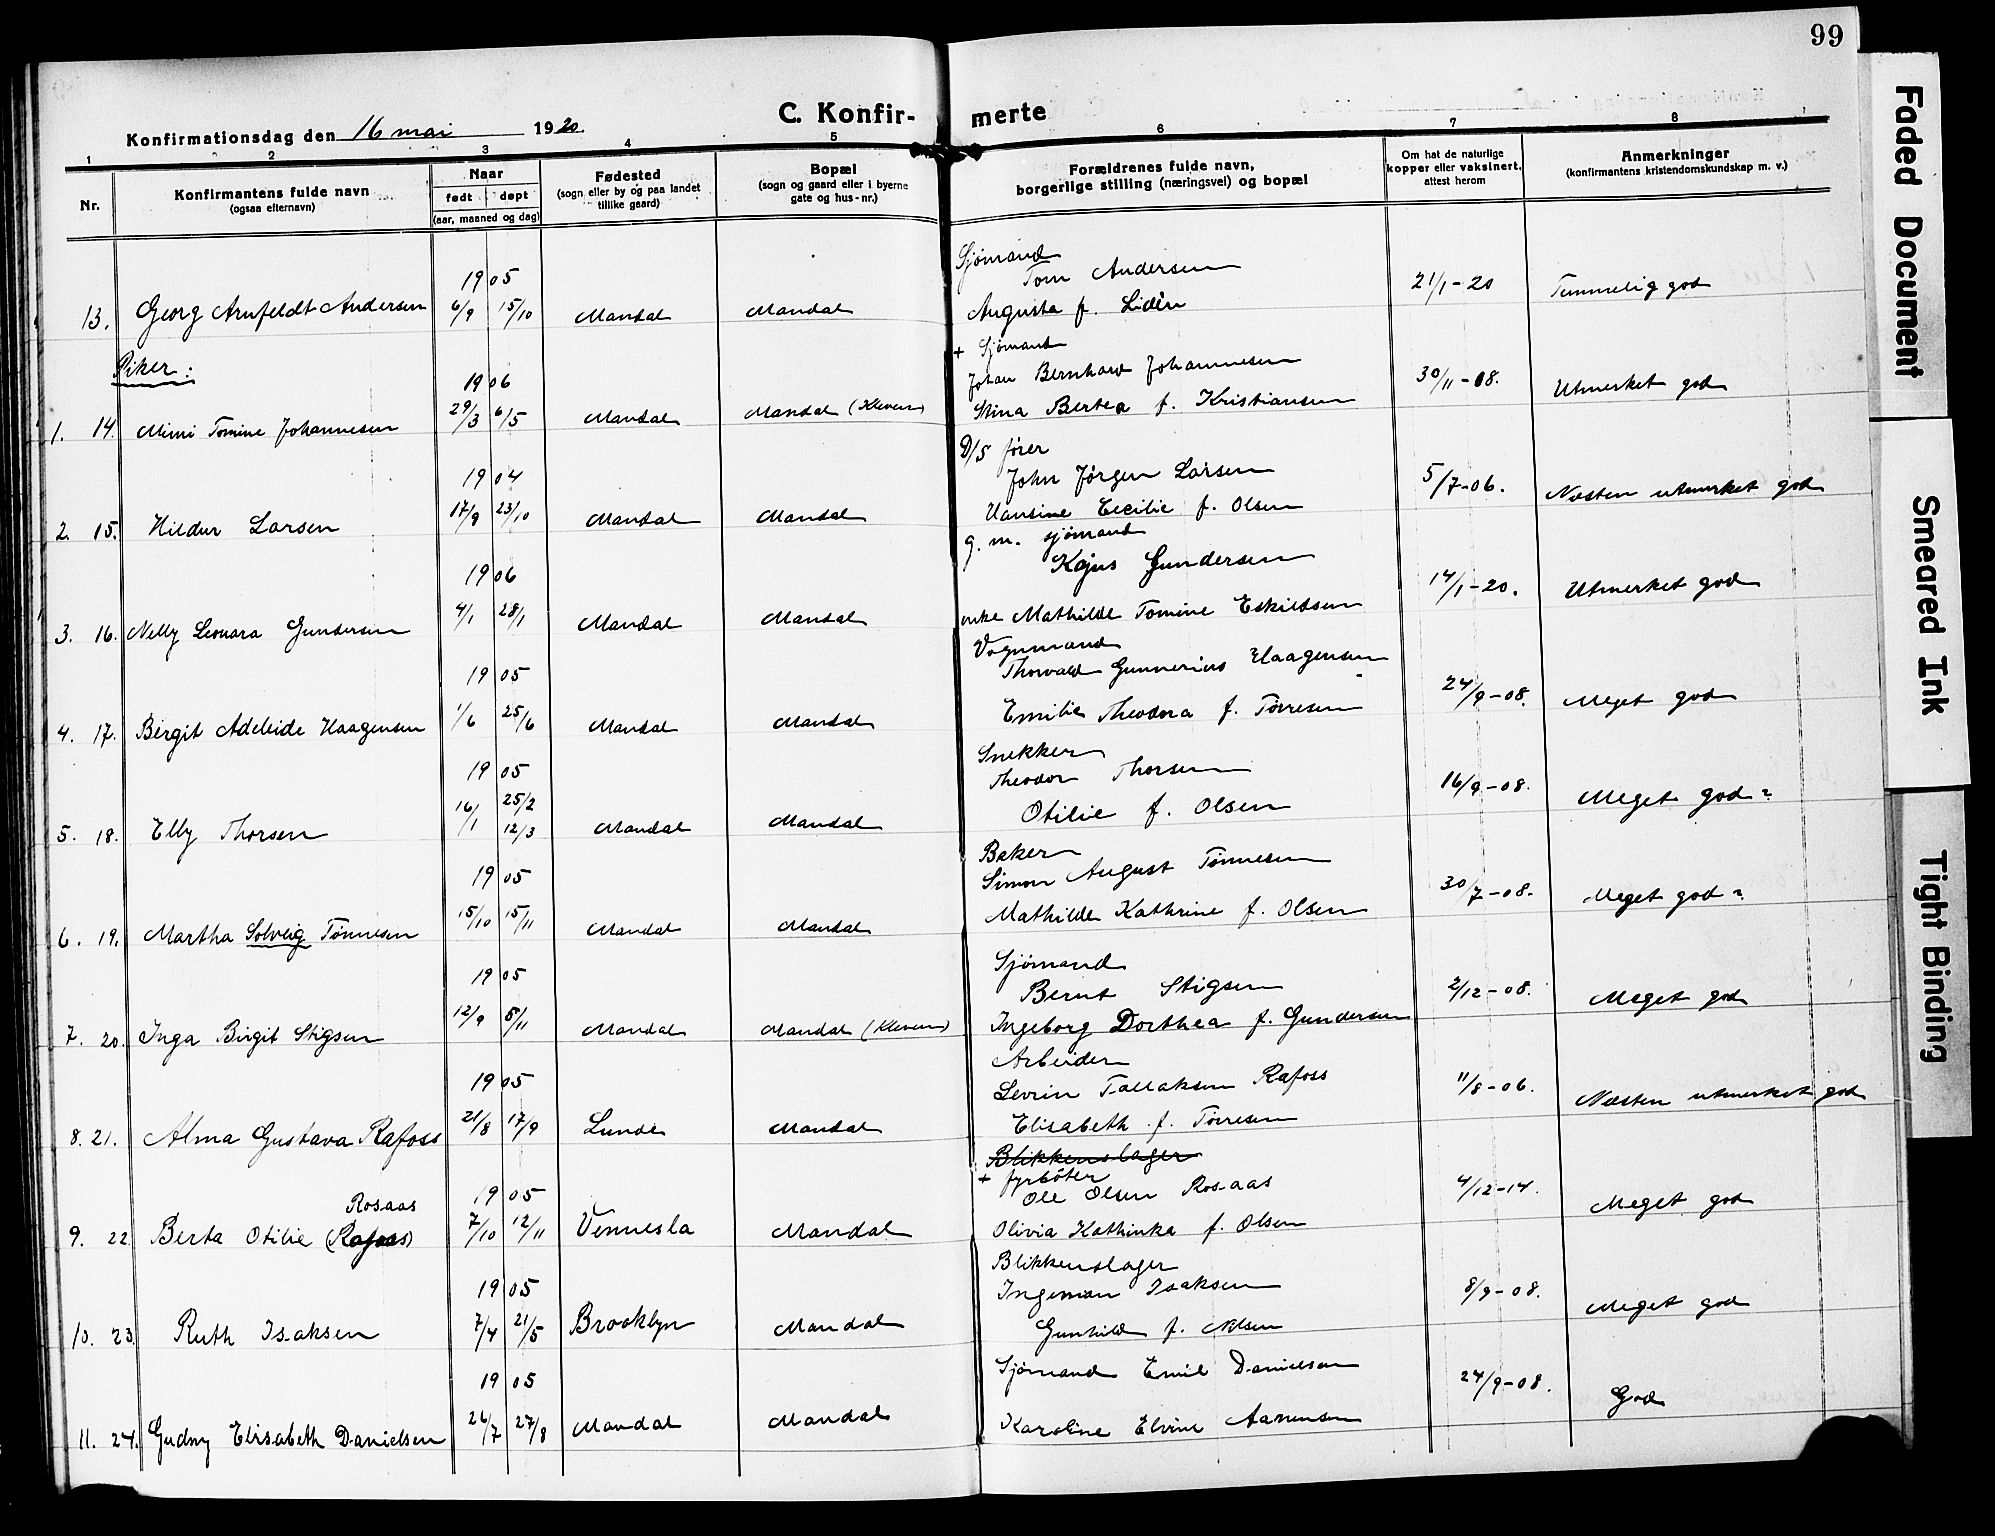 99
C. Konfirmerte
Konfirmationsdag den 16 mai 1920.
1 2 3 4 5 6 7 8
Nr.
Konfirmantens fulde navn
(ogsaa efternavn)
Naar
født døpt
(aar, maaned og dag)
Fødested
(sogn eller by og paa landet
tillike gaard)
Bopæl
(sogn og gaard eller i byerne
gate og hus-nr.)
Forældrenes fulde navn,
borgerlige stilling (næringsvei) og bopæl
Om hat de naturlige
kopper eller vaksinert,
attest herom
Anmerkninger
(konfirmantens kristendomskundskap m. v.)
Sjømand
1905 Tom Andersen
13. Georg Arnfeldt Andersen 6/9 15/10 Mandal Mandal Augusta f. Lidén 21/1-20 Temmelig god
Piker:
+ Sjømand
1906 Johan Bernhard Johannesen
1. 14. Mimi Tomine Johannesen 29/3 6/5 Mandal Mandal (Kleven) Stina Bertea f. Kristiansen 30/11-08. Utmerket god
D/S fører
1904 John Jørgen Larsen
2. 15. Hildur Larsen 17/9 23/10 Mandal Mandal Hansine Cecilie f. Olsen 5/7-06. Næsten utmerket god
g. m. sjømand
1906 Kajus Gundersen
3. 16. Nelly Leonara Gundersen 4/1 28/1 Mandal Mandal enke Mathilde Tomine Eskildsen 14/1-20. Utmerket god
Vognmand
1905 Thorvald Gunnerius Haagensen
4. 17. Birgit Adeleide Haagensen 1/6 25/6 Mandal Mandal Emilie Theodora f. Tørresen 24/9-08. Meget god
Snekker
1905 Theodor Thorsen
5. 18. Elly Thorsen 16/1 25/2 12/3 Mandal Mandal Otilie f. Olsen 16/9-08. Meget god ?
Baker
1905 Simon August Tønnesen
6. 19. Martha Solveig Tønnesen 15/10 15/11 Mandal Mandal Mathilde Kathrine f. Olsen 30/7-08. Meget god ?
Sjømand
1905 Bernt Stigsen
7. 20. Inga Birgit Stigsen 12/9 5/11 Mandal Mandal (Kleven) Ingeborg Dorthea f. Gundersen 2/12-08. Meget god
Arbeider
1905 Severin Tallaksen Rafoss
8. 21. Alma Gustava Rafoss 21/8 17/9 Lunde Mandal Elisabeth f. Tørresen 11/8-06. Næsten utmerket god
Blikkenslager
+ fyrbøter
Rosaas 1905 Ole Olsen Rosaas
9. 22. Berta Otilie (Rafoss) 7/10 12/11 Vennesla Mandal Olivia Kathinka f. Olsen 4/12-14. Meget god
Blikkenslager
1905 Ingeman Isaksen
10. 23. Ruth Isaksen 7/4 21/5 Brooklyn Mandal Gunhild f. Nilsen 8/9-08. Meget god
1905 Sjømand Emil Danielsen
11. 24. Gudny Elisabeth Danielsen 26/7 27/8 Mandal Mandal Karoline Elvine Aanensen 24/9-08. God
Faded Document
Smeared Ink
Tight Binding